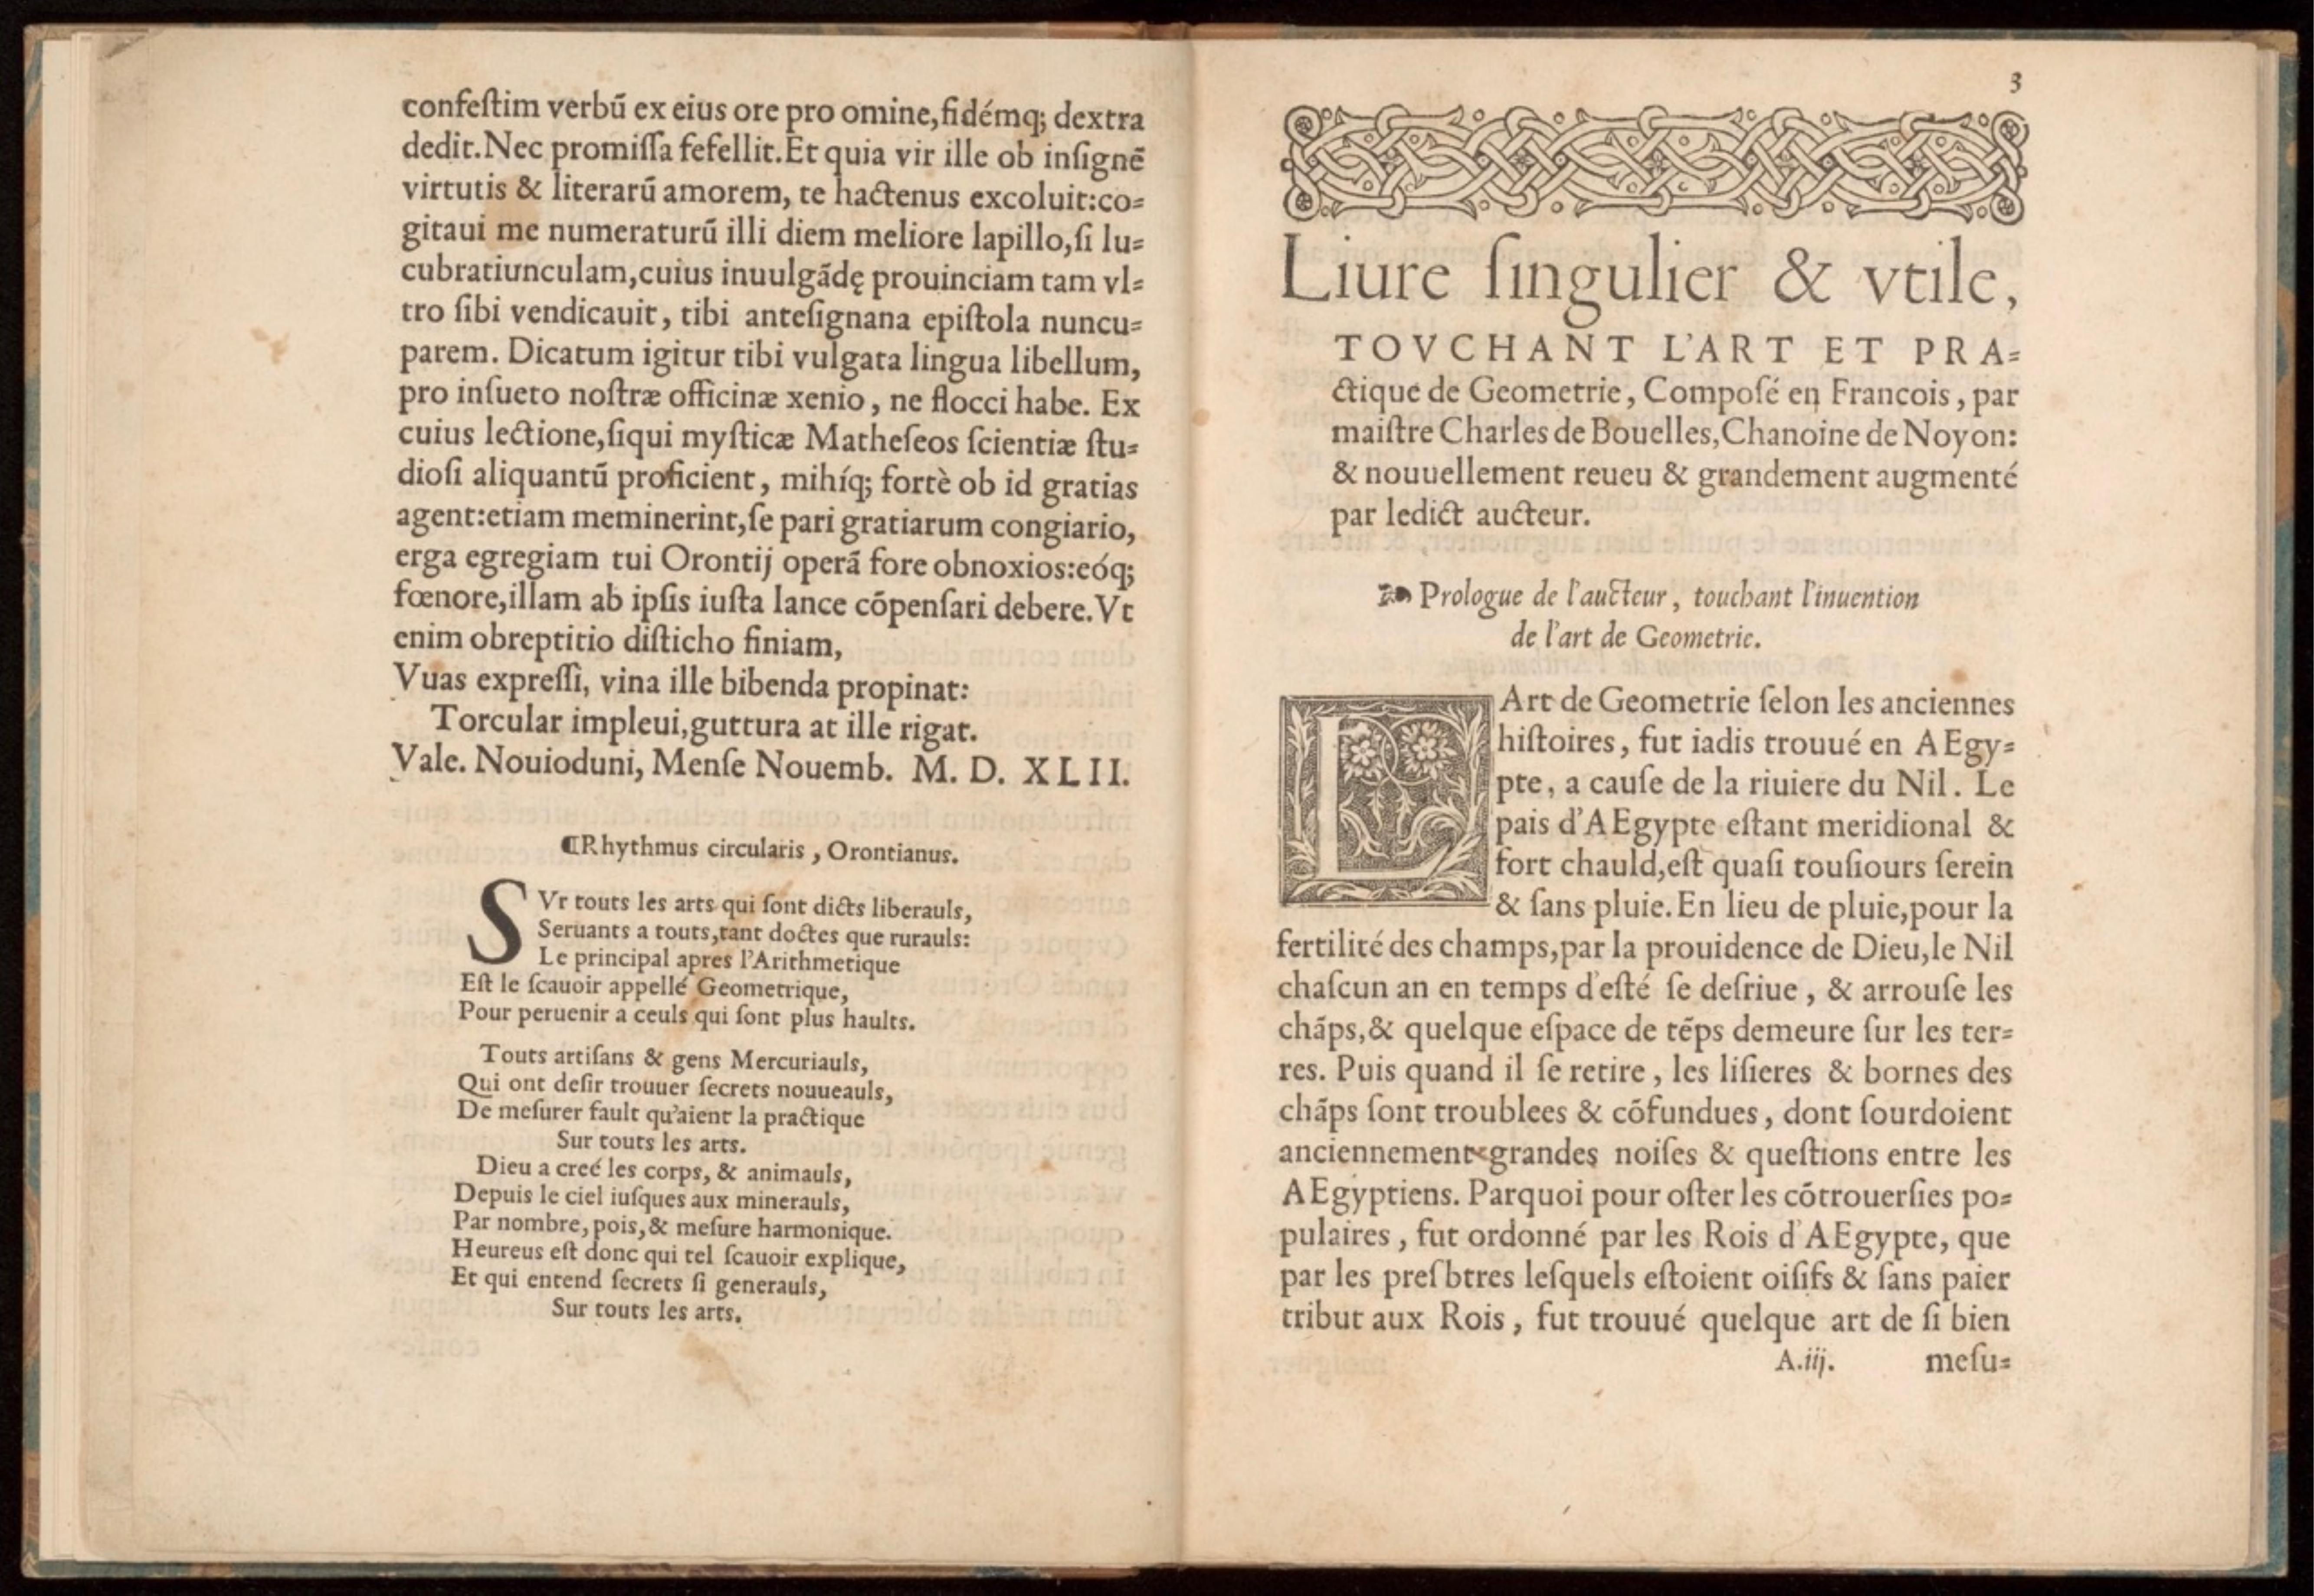 confeſtim verbū ex eius ore pro omine,fidémq; dextra
dedit.Nec promiſſa fefellit.Et quia vir ille ob inſignē
virtutis & literarū amorem, te hactenus excoluit:co=
gitaui me numeraturū illi diem meliore lapillo,ſi lu=
cubratiunculam,cuius inuulgādę prouinciam tam vl=
tro ſibi vendicauit, tibi anteſignana epiſtola nuncu=
parem. Dicatum igitur tibi vulgata lingua libellum,
pro inſueto noſtræ officinæ xenio, ne flocci habe. Ex
cuius lectione,ſiqui myſticæ Matheſeos ſcientiæ ſtu=
dioſi aliquantū proficient, mihíq; fortè ob id gratias
agent:etiam meminerint,ſe pari gratiarum congiario,
erga egregiam tui Orontij operā fore obnoxios:eóq;
fœnore,illam ab ipſis iuſta lance cōpenſari debere.Vt
enim obreptitio diſticho finiam,
Vuas expreſſi, vina ille bibenda propinat:
Torcular impleui,guttura at ille rigat.
Vale. Nouioduni, Menſe Nouemb. M. D. XLII.
¶Rhythmus circularis, Orontianus.
SVr touts les arts qui ſont dicts liberauls,
Seruants a touts,tant doctes que rurauls:
Le principal apres l'Arithmetique
Eſt le ſcauoir appellé Geometrique,
Pour peruenir a ceuls qui ſont plus haults.
Touts artiſans & gens Mercuriauls,
Qui ont deſir trouuer ſecrets nouueauls,
De meſurer fault qu'aient la practique
Sur touts les arts.
Dieu a creé les corps, & animauls,
Depuis le ciel iuſques aux minerauls,
Par nombre, pois,& meſure harmonique.
Heureus eſt donc qui tel ſcauoir explique,
Et qui entend ſecrets ſi generauls,
Sur touts les arts.
3
Liure ſingulier & vtile,
TOVCHANT L'ART ET PRA=
ctique de Geometrie, Compoſé en Francois, par
maiſtre Charles de Bouelles,Chanoine de Noyon:
& nouuellement reueu & grandement augmenté
par ledict aucteur.
❧ Prologue de l'aucteur, touchant l'inuention
de l'art de Geometrie.
LArt de Geometrie ſelon les anciennes
hiſtoires, fut iadis trouué en AEgy=
pte, a cauſe de la riuiere du Nil. Le
pais d'AEgypte eſtant meridional &
fort chauld,eſt quaſi touſiours ſerein
& ſans pluie. En lieu de pluie,pour la
fertilité des champs,par la prouidence de Dieu,le Nil
chaſcun an en temps d'eſté ſe deſriue, & arrouſe les
chāps,& quelque eſpace de tēps demeure ſur les ter=
res. Puis quand il ſe retire, les liſieres & bornes des
chāps ſont troublees & cōfundues, dont ſourdoient
anciennement grandes noiſes & queſtions entre les
AEgyptiens. Parquoi pour oſter les cōtrouerſies po=
pulaires, fut ordonné par les Rois d'AEgypte, que
par les preſbtres leſquels eſtoient oiſifs & ſans paier
tribut aux Rois, fut trouué quelque art de ſi bien
A.iij. meſu=